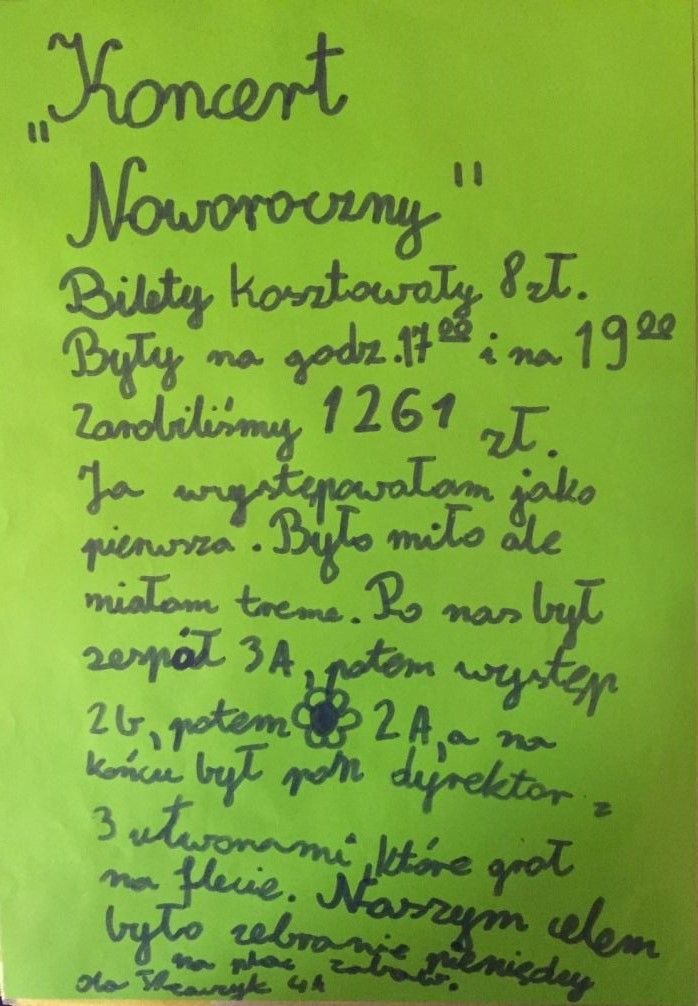 „Koncert
Noworoczny"
Bilety kosztowały 8 zł.
Były na godz. 17 00 i na 19 00
Zarobiliśmy 1261 zł.
Ja występowałam jako
pierwsza. Było miło ale
miałam treme. Po nas był
zespół 3A, potem występ
2b, potem 2A, a na
końcu był pan dyrektor z
3 utworami, które grał
na flecie. Naszym celem
było zebranie pieniędzy
na plac zabaw.
Ola 4A